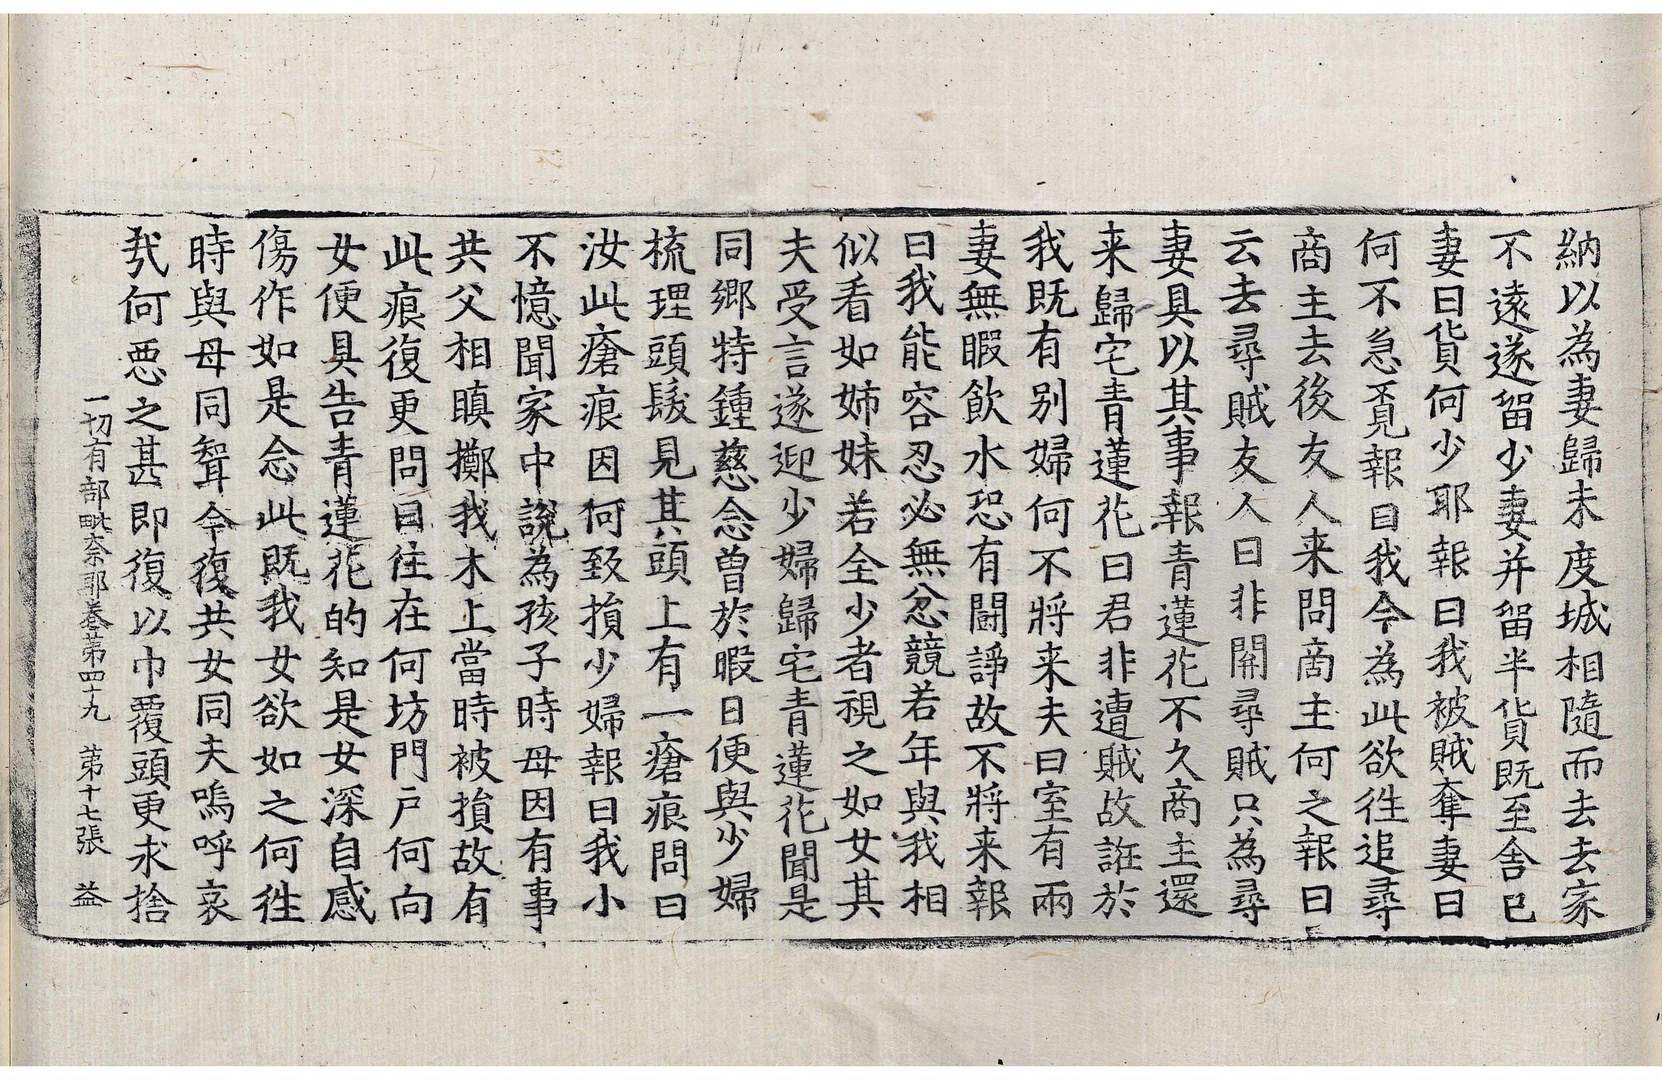 納以為妻歸未度城相隨而去去家
不遠遂留少妻并留半貨既至舍已
妻曰貨何少耶報曰我被賊奪妻曰
何不急覓報曰我今為此欲往追尋
商主去後友人来問商主何之報曰
云去尋賊友人曰非關尋賊只為尋
妻具以其事報青蓮花不久商主還
来歸宅青蓮花曰君非遭賊故誑於
我既有別婦何不將来夫曰室有兩
妻無暇飲水恐有鬪諍故不將来報
曰我能容忍必無忿競若年與我相
似看如姉妹若全少者視之如女其
夫受言遂迎少婦歸宅青蓮花聞是
同鄉特鍾慈念曾於暇日便與少婦
梳理頭髮見其頭上有一瘡痕問曰
汝此瘡痕因何致損少婦報曰我小
不憶聞家中說為孩子時母因有事
共父相瞋擲我木上當時被損故有
此痕復更問曰住在何坊門户何向
女便具告青蓮花的知是女深自感
傷作如是念此既我女欲如之何徃
時與母同聟今復共女同夫嗚呼哀
㢤何惡之甚即復以巾覆頭更求捨
一切有部毗奈耶卷第四十九　第十七張　益